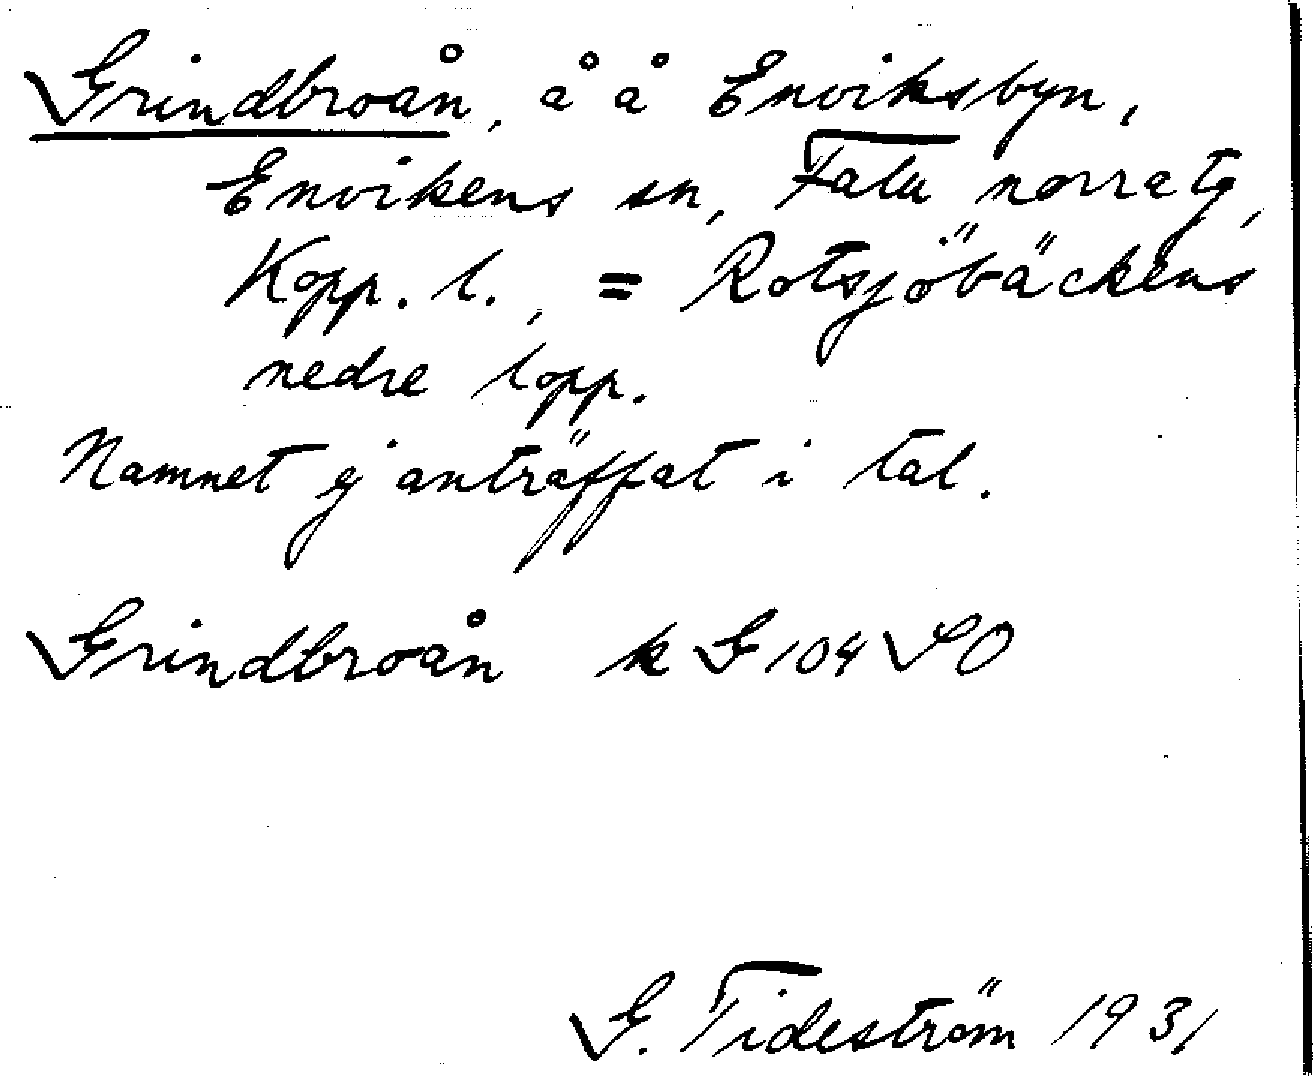 Grindbroån, å å Enviksbyn,
Envikens sn, Falu norra tg,
Kopp. l., = Rotsjöbäckens
nedre lopp.
Namnet ej anträffat i tal.
Grindbroån k G 104 SO
G. Tideström 1931